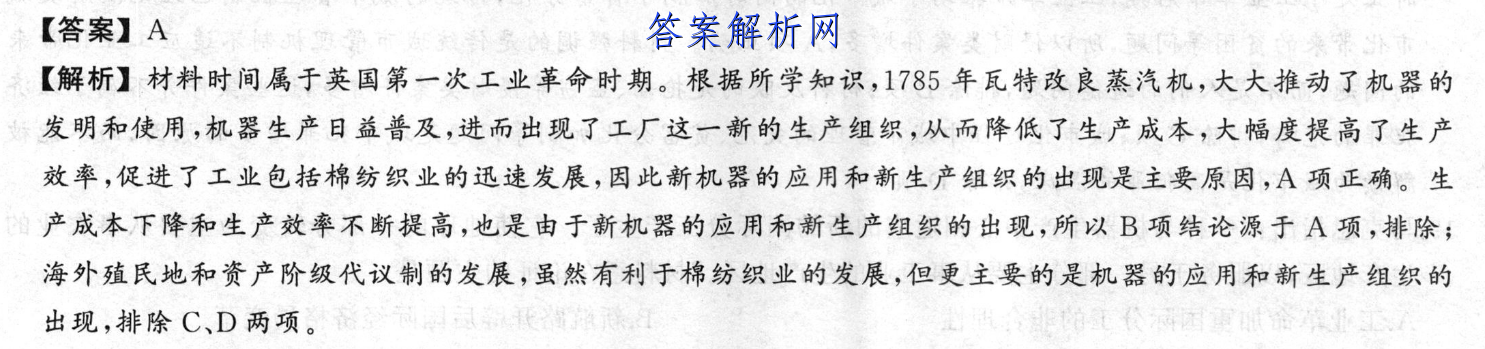 【答案】A
答案解析网
【解析】材料时间属于英国第一次工业革命时期。根据所学知识,1785 年瓦特改良蒸汽机,大大推动了机器的
发明和使用,机器生产日益普及,进而出现了工厂这一新的生产组织,从而降低了生产成本,大幅度提高了生产
效率,促进了工业包括棉纺织业的迅速发展,因此新机器的应用和新生产组织的出现是主要原因,A 项正确。生
产成本下降和生产效率不断提高,也是由于新机器的应用和新生产组织的出现,所以 B 项结论源于 A 项,排除;
海外殖民地和资产阶级代议制的发展,虽然有利于棉纺织业的发展,但更主要的是机器的应用和新生产组织的
出现,排除 C、D 两项。